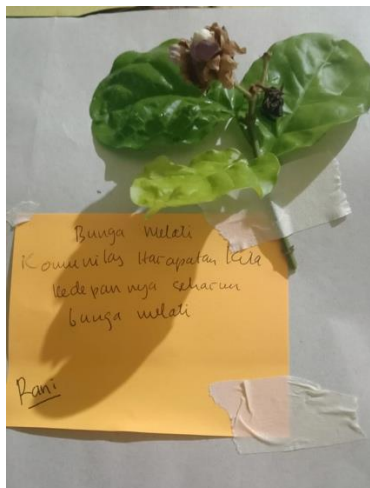 Bunga Melati
Komunitas Harapatan Kita
kedepannya seharum
bunga melati
Rani